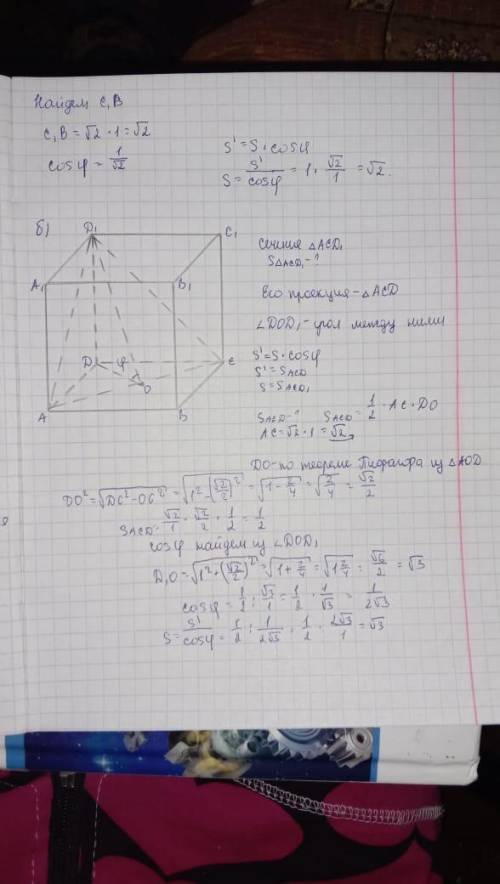 Найдем C₁B
C₁B = √2 · 1 = √2
cosφ = 1/√2
S' = S · cosφ
S = S'/cosφ = 1 · √2/1 = √2.
б)
D₁
C₁
A₁
B₁
D
φ
C
O
A
B
сечение △ACD₁
S△ACD₁ - ?
Его проекция - △ACD
∠DOD₁ - угол между ними
S' = S · cosφ
S' = SACD
S = SACD₁
SACD - ? SACD = 1/2 · AC · DO
AC = √2 · 1 = √2
DO - по теореме Пифагора из △AOD
DO² = √(DC² - OC²) = √(1² - (√2/2)²) = √(1 - 2/4) = √(2/4) = √2/2
SACD = √2/1 · √2/2 · 1/2 = 1/2
cosφ найдем из ∠DOD₁
D₁O = √(1² + (√2/2)²) = √(1 + 2/4) = √(1 2/4) = √6/2 = √3
cosφ = 1/2 : √3/1 = 1/2 · 1/√3 = 1/2√3
S = S'/cosφ = 1/2 : 1/2√3 = 1/2 · 2√3/1 = √3